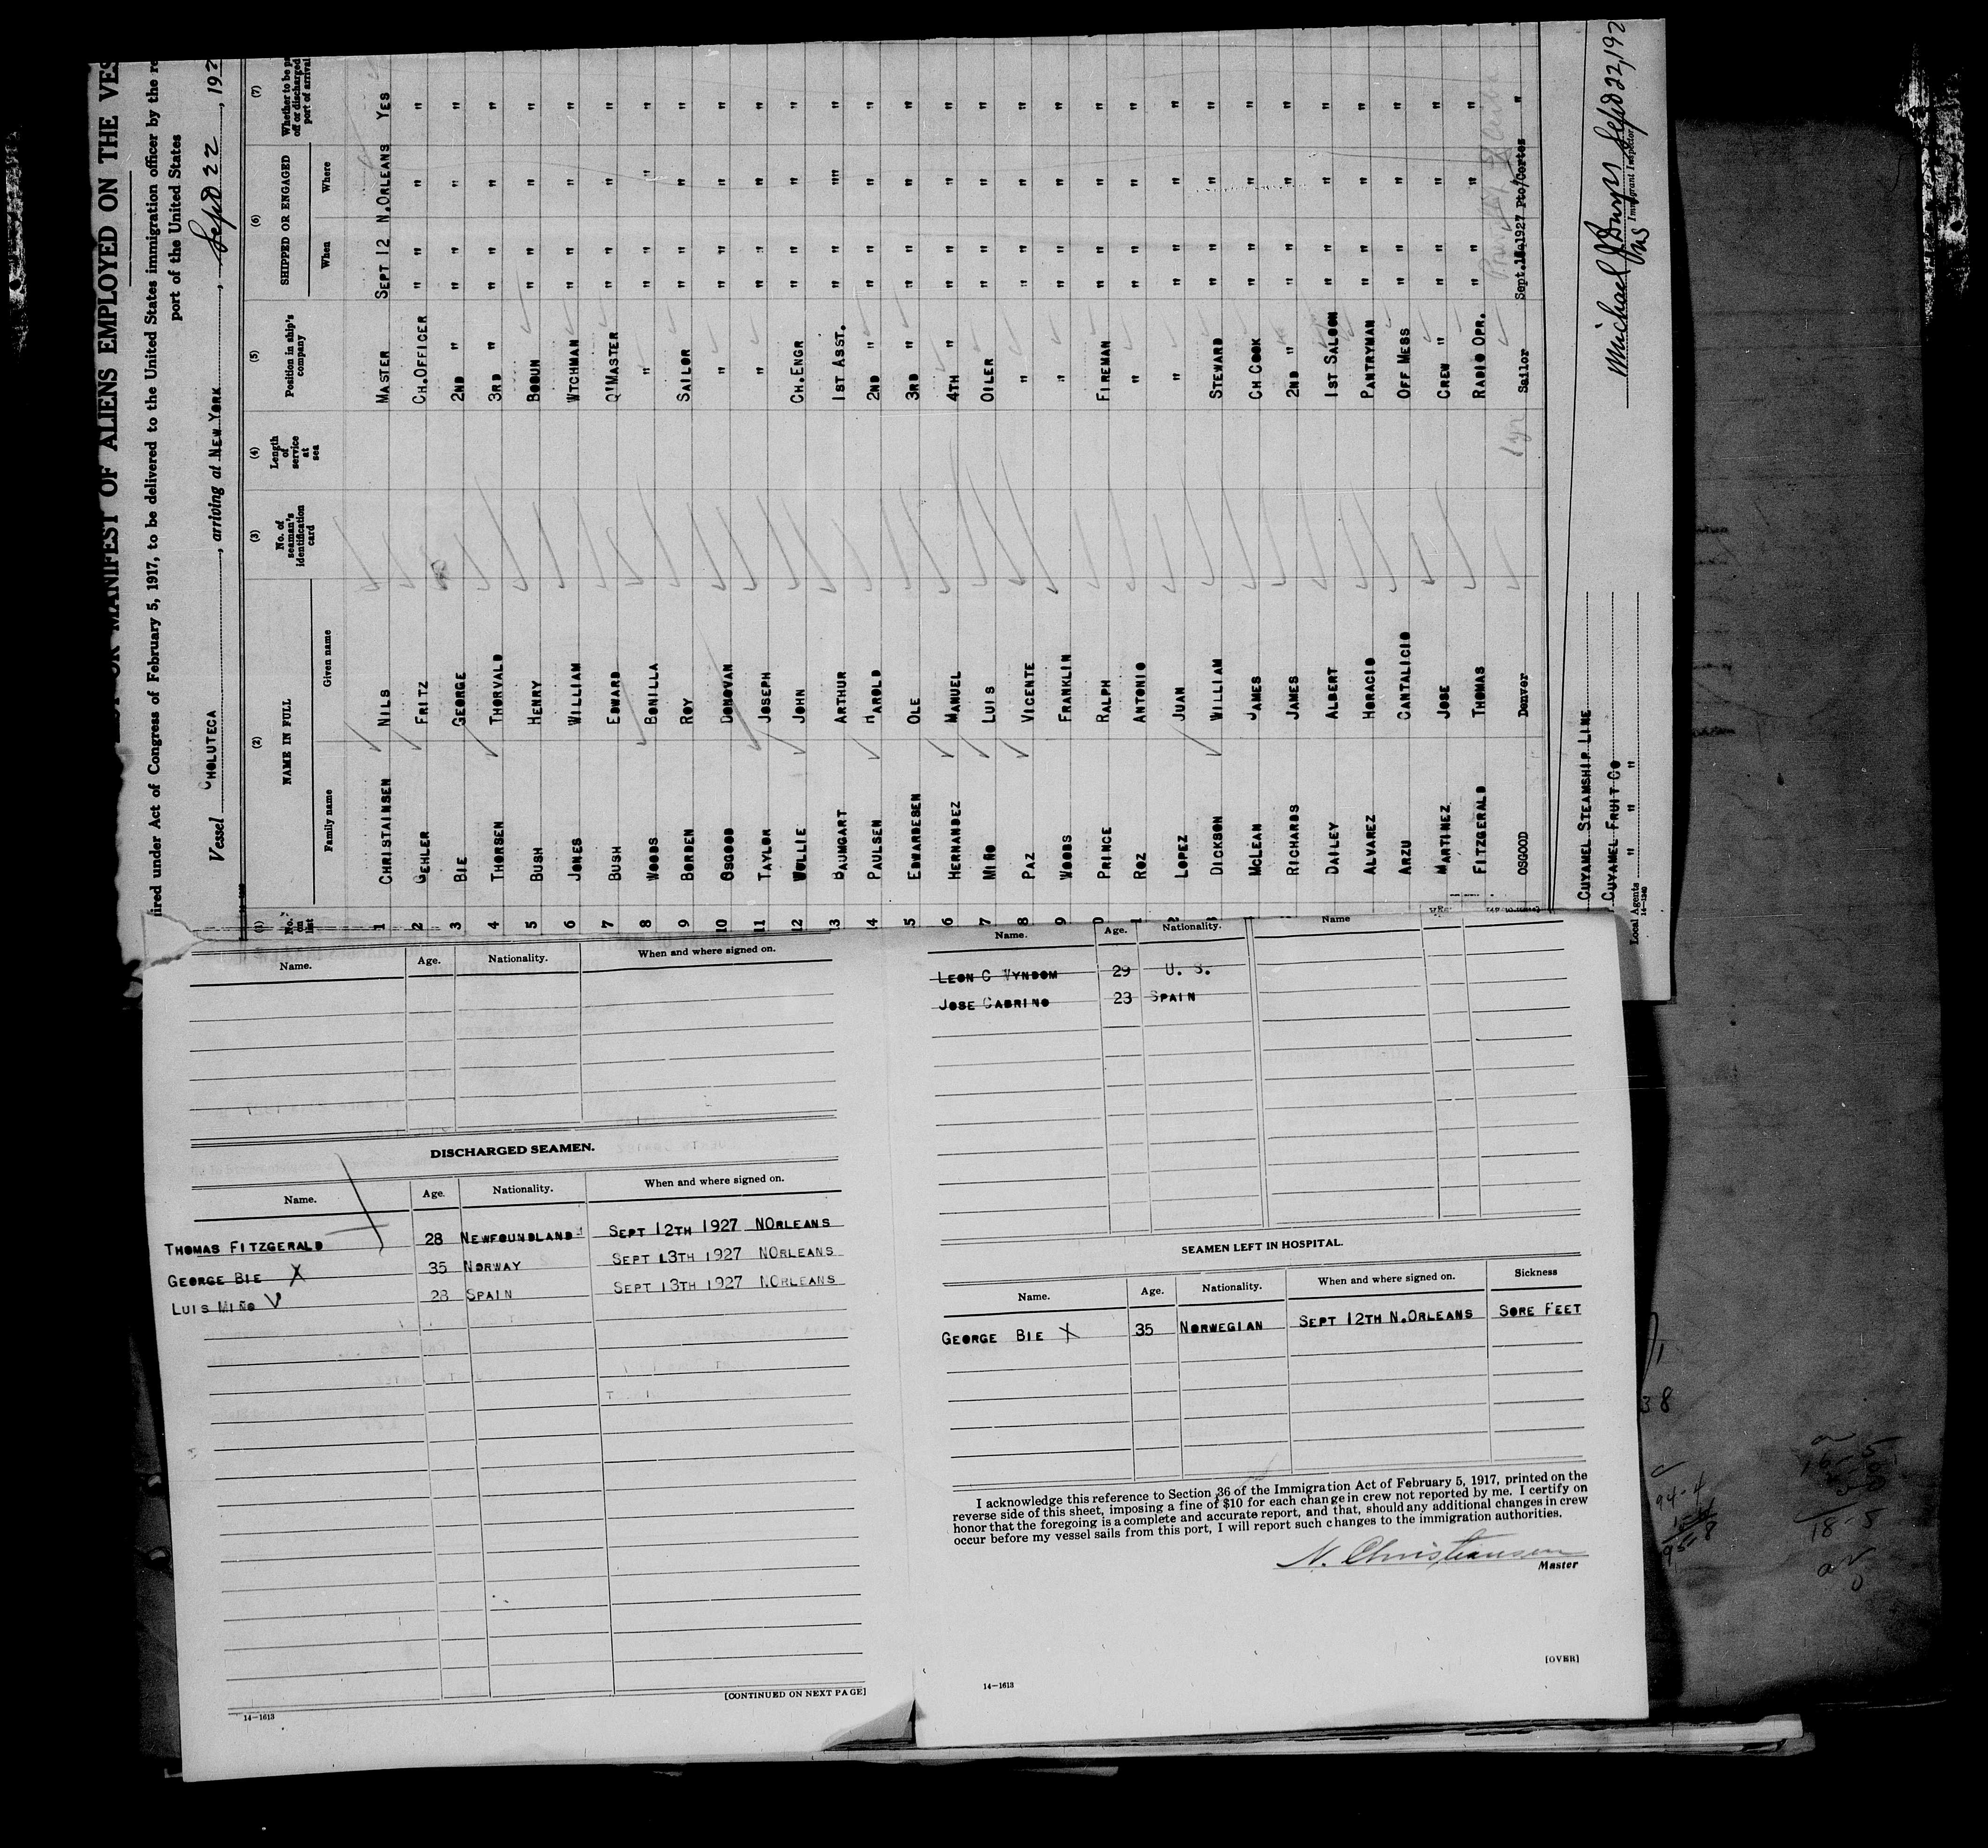 OR MANIFEST OF ALIENS EMPLOYED ON THE VES
ired under Act of Congress of February 5, 1917, to be delivered to the United States immigration officer by the re
port of the United States
Vessel CHOLUTECA, arriving at NEW YORK, Sept 22, 192
(1) (2) (3) (4) (5) (6) (7)
No. on list NAME IN FULL No. of seaman's identification card Length of service at sea Position in ship's company SHIPPED OR ENGAGED Whether to be p off or discharged port of arrival
Family name Given name When Where
1 CHRISTAINSEN NILS MASTER SEPT 12 N.ORLEANS YES
2 GEHLER FRITZ CH.OFFICER " " " "
3 BIE GEORGE 2ND " " " " "
4 THORSEN THORVALD 3RD " " " " "
5 BUSH HENRY BOSUN " " " "
6 JONES WILLIAM WTCHMAN " " " "
7 BUSH EDWARD Q'MASTER " " " "
8 WOODS BONILLA " " " " "
9 BORDEN ROY SAILOR " " " "
10 OSGOOD DONOVAN " " " " "
11 TAYLOR JOSEPH " " " " "
12 WYLLIE JOHN CH.ENGR " " " "
13 BAUMGART ARTHUR 1ST ASST. " " "" "
4 PAULSEN HAROLD 2ND " " " " "
5 EDWARDESEN OLE 3RD " " " " "
6 HERNANDEZ MANUEL 4TH " " " " "
7 MIÑO LUIS OILER " " " "
8 PAZ VICENTE " " " " "
9 WOODS FRANKLIN " " " " "
0 PRINCE RALPH FIREMAN " " " "
1 ROZ ANTONIO " " " " "
2 LOPEZ JUAN " " " " "
3 DICKSON WILLIAM STEWARD " " " "
MCLEAN JAMES CH.COOK " " " "
RICHARDS JAMES 2ND " " " " "
DAILEY ALBERT 1ST SALOON " " " "
ALVAREZ HORACIO PANTRYMAN " " " "
ARZU CANTALICIO OFF MESS " " " "
MARTINEZ JOSE CREW " " " " "
FITZGERALD THOMAS RADIO OPR. " " " "
OSGOOD Denver 1 yr Sailor Sept. 1927 Pto/Cortes "
CUYAMEL STEAMSHIP LINE
CUYAMEL FRUIT CO
Local Agents " " "
14-1240
Michael J Sept 22, 192
Immigrant Inspector
Name. Age. Nationality. When and where signed on.
DISCHARGED SEAMEN.
Name. Age. Nationality. When and where signed on.
THOMAS FITZGERALD 28 NEWFOUNDLAND SEPT 12TH 1927 NORLEANS
GEORGE BIE X 35 NORWAY SEPT 13TH 1927 NORLEANS
LUIS MIÑO V 28 SPAIN SEPT 13TH 1927 NORLEANS
[CONTINUED ON NEXT PAGE]
14-1613
Name. Age. Nationality. Name
LEON C WYNDOM 29 U. S.
JOSE CABRINO 23 SPAIN
SEAMEN LEFT IN HOSPITAL.
Name. Age. Nationality. When and where signed on. Sickness
GEORGE BIE X 35 NORWEGIAN SEPT 12TH N.ORLEANS SORE FEET
I acknowledge this reference to Section 36 of the Immigration Act of February 5, 1917, printed on the
reverse side of this sheet, imposing a fine of $10 for each change in crew not reported by me. I certify on
honor that the foregoing is a complete and accurate report, and that, should any additional changes in crew
occur before my vessel sails from this port, I will report such changes to the immigration authorities.
N. Christiansen
Master
[OVER]
14-1613
38
94-4
18-8